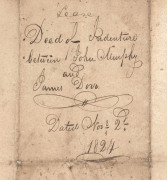 Lease
Deed of Indenture
between John Murphy
and
James Dove
Dated Nov. 2d.
1824